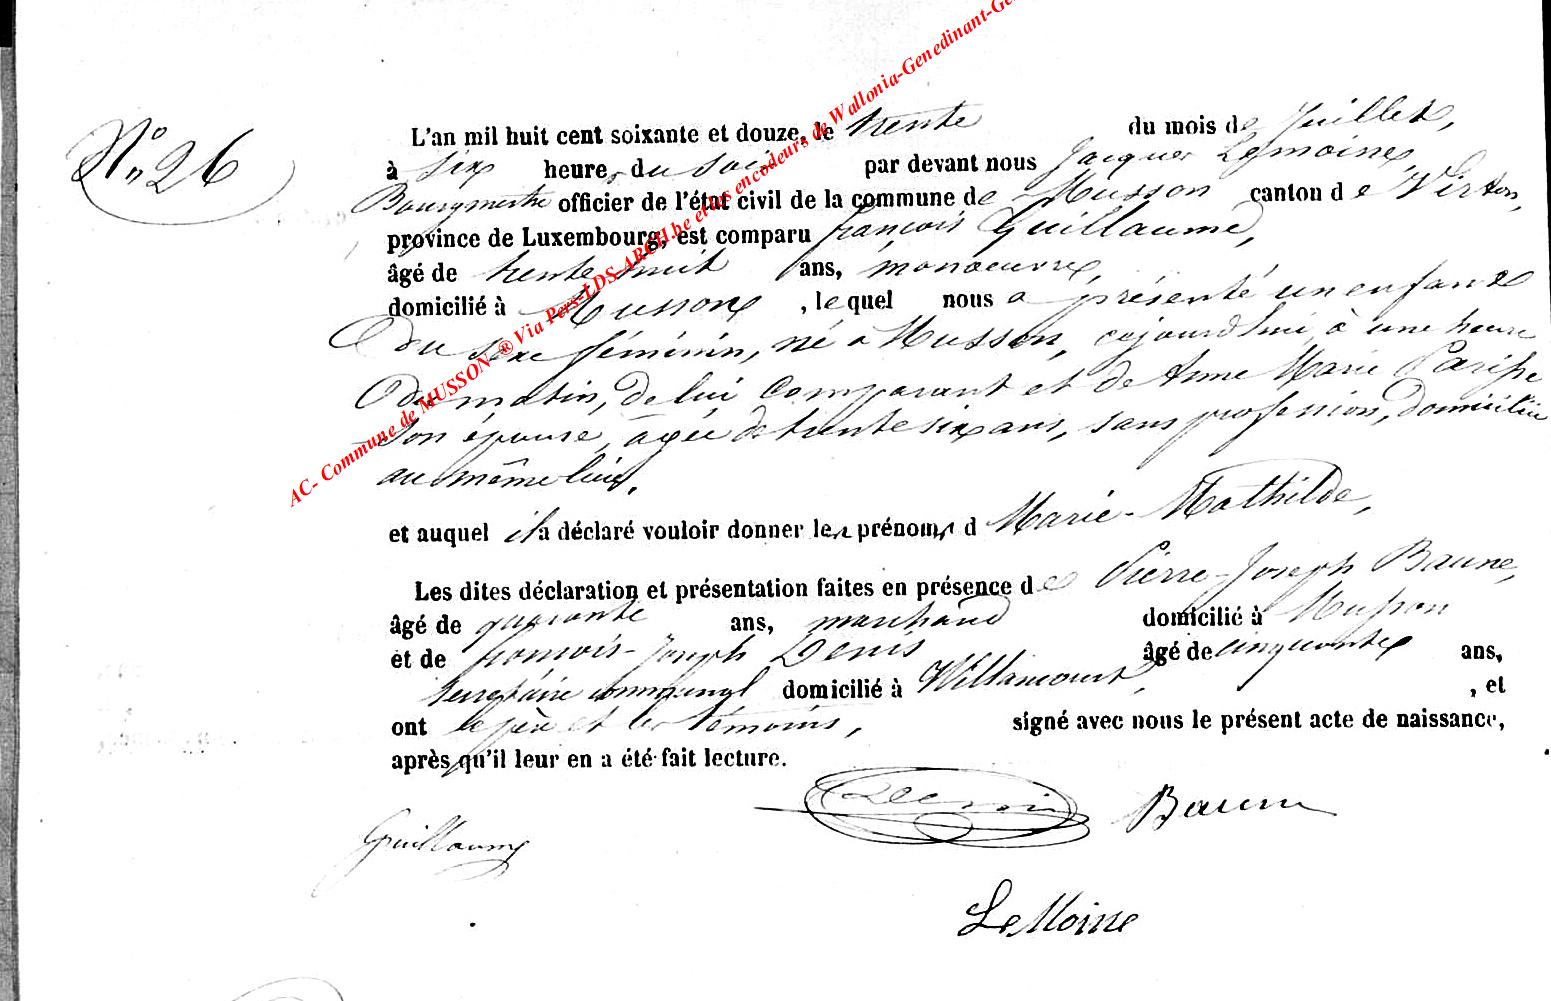 N° 26
L'an mil huit cent soixante et douze, le trente du mois de Juillet,
à six heures du soir par devant nous Jacques Lemoine,
Bourgmestre officier de l'état civil de la commune de Musson canton de Virton,
province de Luxembourg, est comparu françois Guillaume,
âgé de trente huit ans, manoeuvre,
domicilié à Musson, lequel nous a présenté un enfant
du sexe féminin, né à Musson, cejourd'hui, à une heure
du matin, de lui comparant et de Anne Marie Parisse
son épouse, agée de trente six ans, sans profession, domiciliée
au même lieu,
et auquel il a déclaré vouloir donner les prénoms d Marie-Mathilde,
Les dites déclaration et présentation faites en présence de Pierre-Joseph Baune,
âgé de quarante ans, marchand domicilié à Musson
et de françois-Joseph Denis âgé de cinquante ans,
secrétaire communal domicilié à Willancourt, , et
ont le père et les témoins, signé avec nous le présent acte de naissance,
après qu'il leur en a été fait lecture.
Guillaume
Denis
Baune
LeMoine
AC- Commune de MUSSON ® Via Pers-LDS-ARCH.be et les encodeurs de Wallonia-Genedinant-Ge